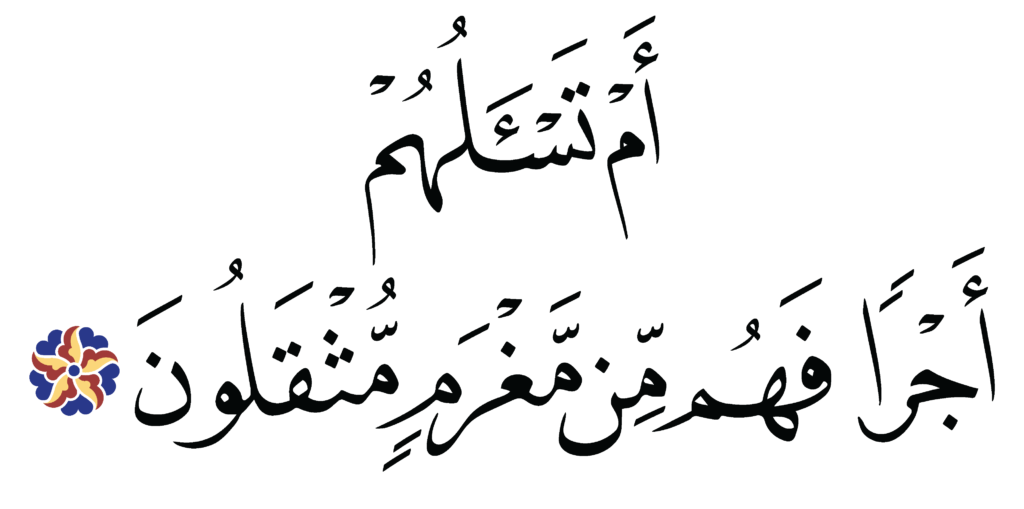 أَمْ تَسْـَٔلُهُمْ
أَجْرًا فَهُم مِّن مَّغْرَمٍ مُّثْقَلُونَ